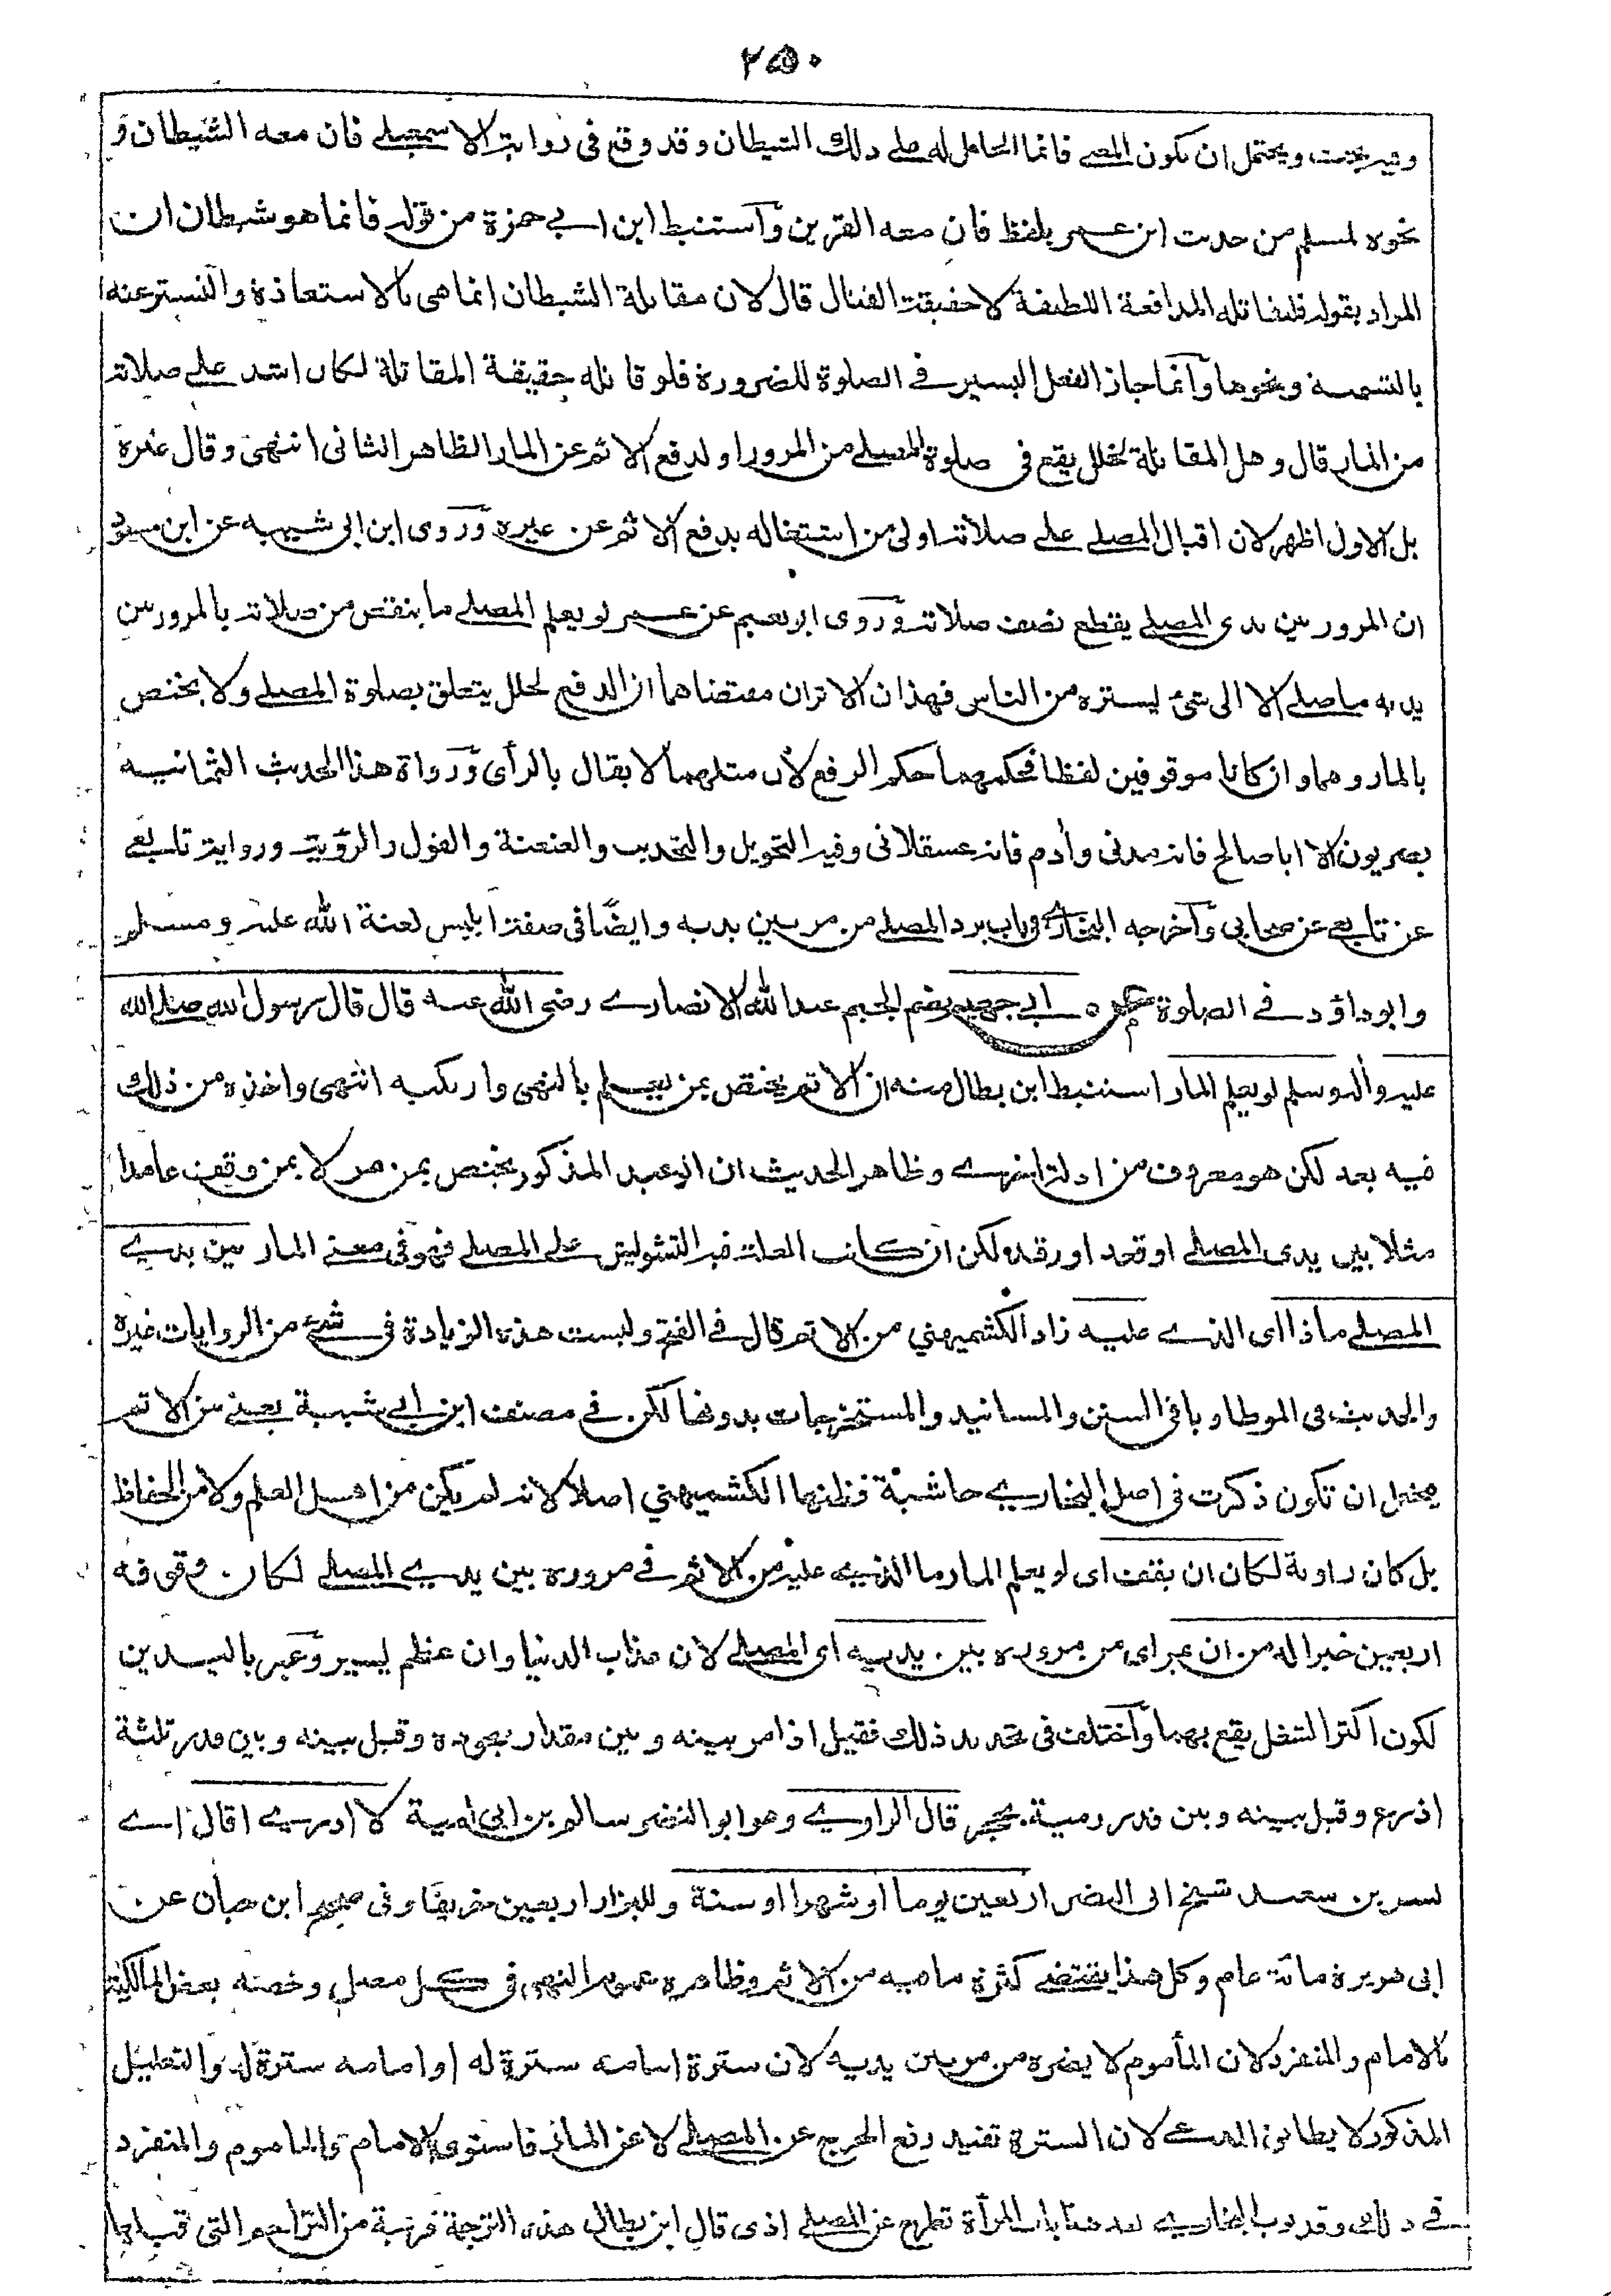 ٢٥٠
ويحتمل ان يكون المعنى فانما الحامل له على ذلك الشيطان وقد وقع فى رواية الاسمعيلي فان معه الشيطان و
نحوه لمسلم من حديث ابن عمر بلفظ فان معه القرين وآستنبط ابن ابي حمزة من قوله فانما هو شيطان ان
المراد بقوله فليقاتله المدافعة اللطيفة لا حقيقة القتال قال لان مقاتلة الشيطان انما هى بالاستعاذة والتستر عنه
بالتسمية ونحوها وآنما جاز الفعل اليسير في الصلوة للضرورة فلو قاتله حقيقة المقاتلة لكان اشد على صلاته
من المار قال وهل المقاتلة لخلل يقع فى صلوة المصلے من المرور او لدفع الاثم عن المار الظاهر الثانى انتهى وقال غيره
بل الاول اظهر لان اقبال المصلے على صلاته اولى من اشتغاله بدفع الاثم عن غيره وروى ابن ابى شيبه عن ابن مسعود
ان المرور بين يدى المصلے يقطع نصف صلاته وروى ابو نعيم عن عمر لو يعلم المصلے ما ينقص من صلاته بالمرور بين
يديه ما صلے الا الى شئ يستره من الناس فهذان الاثران مقتضاهما ان الدفع لخلل يتعلق بصلوة المصلے ولا يختص
بالمار وهما وان كانا موقوفين لفظا فحكمهما حكم الرفع لان مثلهما لا يقال بالرأى وَرواة هذا الحديث الثمانيه
بصريون الا ابا صالح فانه مدنى وأدم فانه عسقلانى وفيه التحويل والتحديث والعنعنة والقول والرؤية ورواية تابعے
عن تابعے عن صحابى وآخرجه البخارے فى باب يرد المصلے من مر بين يديه وايضًا فى صفة ابليس لعنة الله عليه ومسلم
وابو داؤد في الصلوة عن ابي جهيم بضم الجيم عبد الله الانصارے رضى الله عنه قال قال رسول الله صلے الله
عليه واله وسلم لو يعلم المار استنبط ابن بطال منه ان الاثم يختص بمن يعلم بالنهى وارتكبه انتهى واخذه من ذلك
فيه بعد لكن هو معروف من ادلة اخرے وظاهر الحديث ان الوعيد المذكور يختص بمن مر لا بمن وقف عامدا
مثلا بين يدى المصلے او قعد او رقد لكن ان كانت العلة فيه التشويش على المصلے فهو فى معنے المار بين يدے
المصلے ماذا اى الذے عليه زاد الكشميهني من الاثم قال في الفتح وليست هذه الزيادة فى شئ من الروايات غيره
والحديث فى الموطا وباقى السنن والمسانيد والمستخرجات بدونها لكن في مصنف ابن ابي شيبة يعنے من الاثم
يحتمل ان تكون ذكرت فى اصل البخارے حاشية فظنها الكشميهني اصلا لانه لم يكن من اهل العلم ولا من الحفاظ
بل كان راوية لكان ان يقف اى لو يعلم المار ما الذے عليه من الاثم في مروره بين يدے المصلے لكان وقوفه
اربعين خيرا له من ان يمر اى من مروره بين يديه اى المصلے لان عذاب الدنيا وان عظم يسير وَعبر باليدين
لكون اكثر الشغل يقع بهما وآختلف فى تحديد ذلك فقيل اذا مر بينه وبين مقدار سجوده وقيل بينه وبين قدر ثلثة
اذرع وقيل بينه وبين قدر رمية بحجر قال الراوے وهو ابو النضر سالم بن ابى امية لا ادرے اقال اے
بسر بن سعيد شيخ ابى النضر اربعين يوما او شهرا او سنة وللبزار اربعين خريفًا وفى صحيح ابن حبان عن
ابى هريرة مائة عام وكل هذا يقتضے كثرة ما فيه من الاثم وظاهره عموم النهى فى كل مصل وخصه بعض المالكية
بالامام والمنفرد لان المأموم لا يضره من مر بين يديه لان سترة امامه سترة له او امامه سترة له والتعليل
المذكور لا يطابق المدعے لان السترة تفيد رفع الحرج عن المصلے لا عن المار فاستوى الامام والماموم والمنفرد
في ذلك وقد بوب البخارے بعد هذا باب المرأة تطرح عن المصلے اذى قال ابن بطال هذه الترجمة قريبة من التراجم التى قبلها